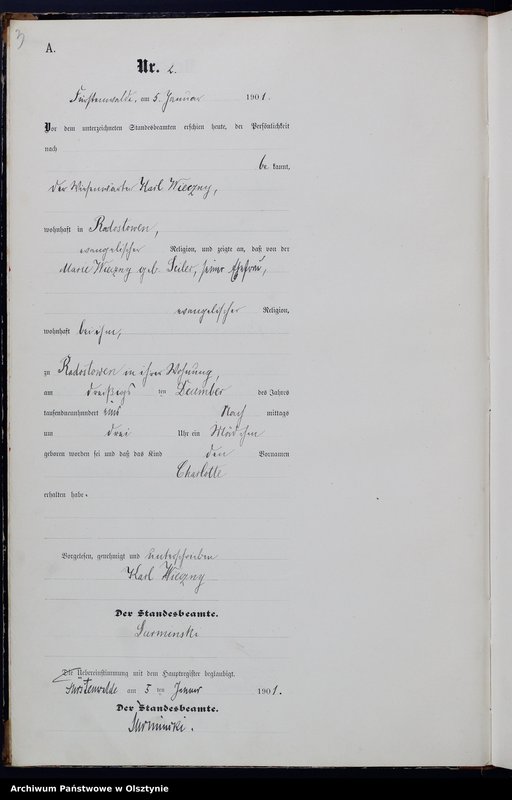 A.
Nr. 2.
Fürstenwalde, am 5. Januar 1901.
Vor dem unterzeichneten Standesbeamten erschien heute, der Persönlichkeit
nach
be kannt,
der Wiesenwärter Karl Wieczny,
wohnhaft in Radostowen,
evangelischer Religion, und zeigte an, daß von der
Marie Wieczny geb. seiner Ehefrau,
evangelischer Religion,
wohnhaft bei ihm,
zu Radostowen in ihrer Wohnung,
am ten Dezember des Jahres
tausendneunhundert Nach mittags
um drei Uhr ein Mädchen
geboren worden sei und daß das Kind den Vornamen
Charlotte
erhalten habe.
Vorgelesen, genehmigt und unterschrieben
Karl Wieczny
Der Standesbeamte.
Surminski
Die Uebereinstimmung mit dem Hauptregister beglaubigt.
Fürstenwalde am 5 ten Januar 1901.
Der Standesbeamte.
Surminski.
Archiwum Państwowe w Olsztynie